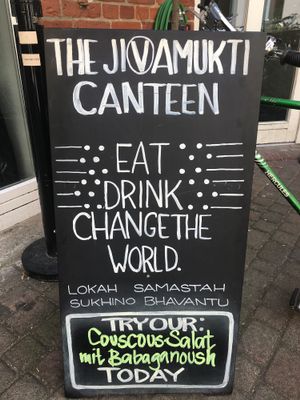 THE JIVAMUKTI
CANTEEN
EAT
DRINK
CHANGE THE
WORLD.
LOKAH SAMASTAH
SUKHINO BHAVANTU
TRY OUR:
Couscous-Salat
mit Babaganoush
TODAY
HERCULES